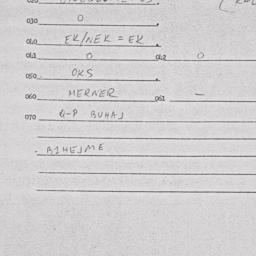 030 0
040 EK/NEK = EK
041 0 042 0
050 OKS
060 MERNER 061 —
070 Q-P BUHAJ
BIHEJME